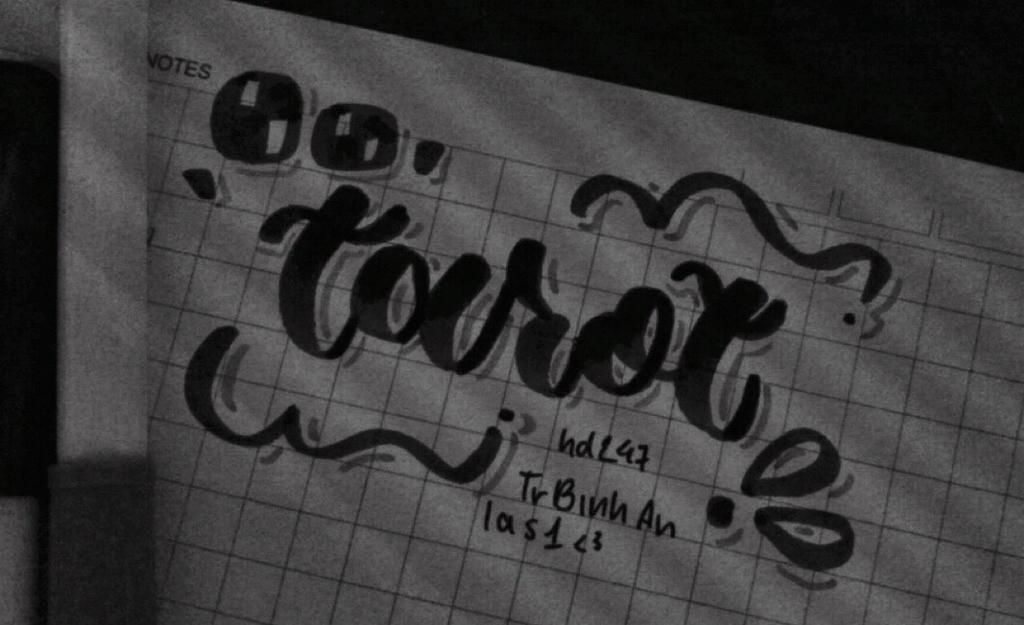 NOTES
tarot
hd247
Tr Bình An
las1 <3